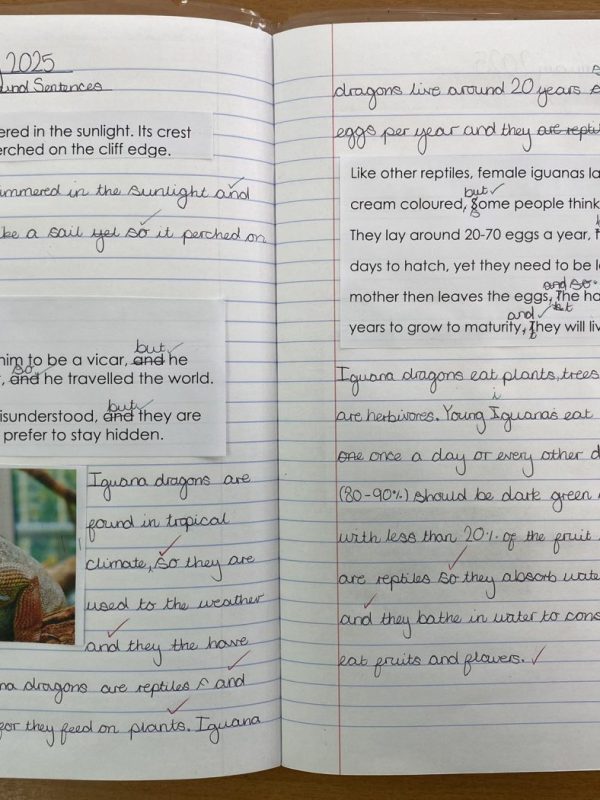 2025
Sentences
ered in the sunlight. Its crest
erched on the cliff edge.
immered in the sunlight and
ke a sail yet so it perched on
him to be a vicar, and but he
, and so he travelled the world.
isunderstood, and but they are
prefer to stay hidden.
Iguana dragons are
found in tropical
climate, so they are
used to the weather
and they the have
na dragons are reptiles and
for they feed on plants. Iguana
dragons live around 20 years
eggs per year and they are repti
Like other reptiles, female iguanas la
but
cream coloured, some people think
They lay around 20-70 eggs a year,
days to hatch, yet they need to be le
and so
mother then leaves the eggs, The ha
and
years to grow to maturity, they will liv
Iguana dragons eat plants, trees
are herbivores. Young iguanas eat
one once a day or every other d
(80-90%) should be dark green
with less than 20% of the fruit
are reptiles so they absorb wate
and they bathe in water to cons
eat fruits and flowers.